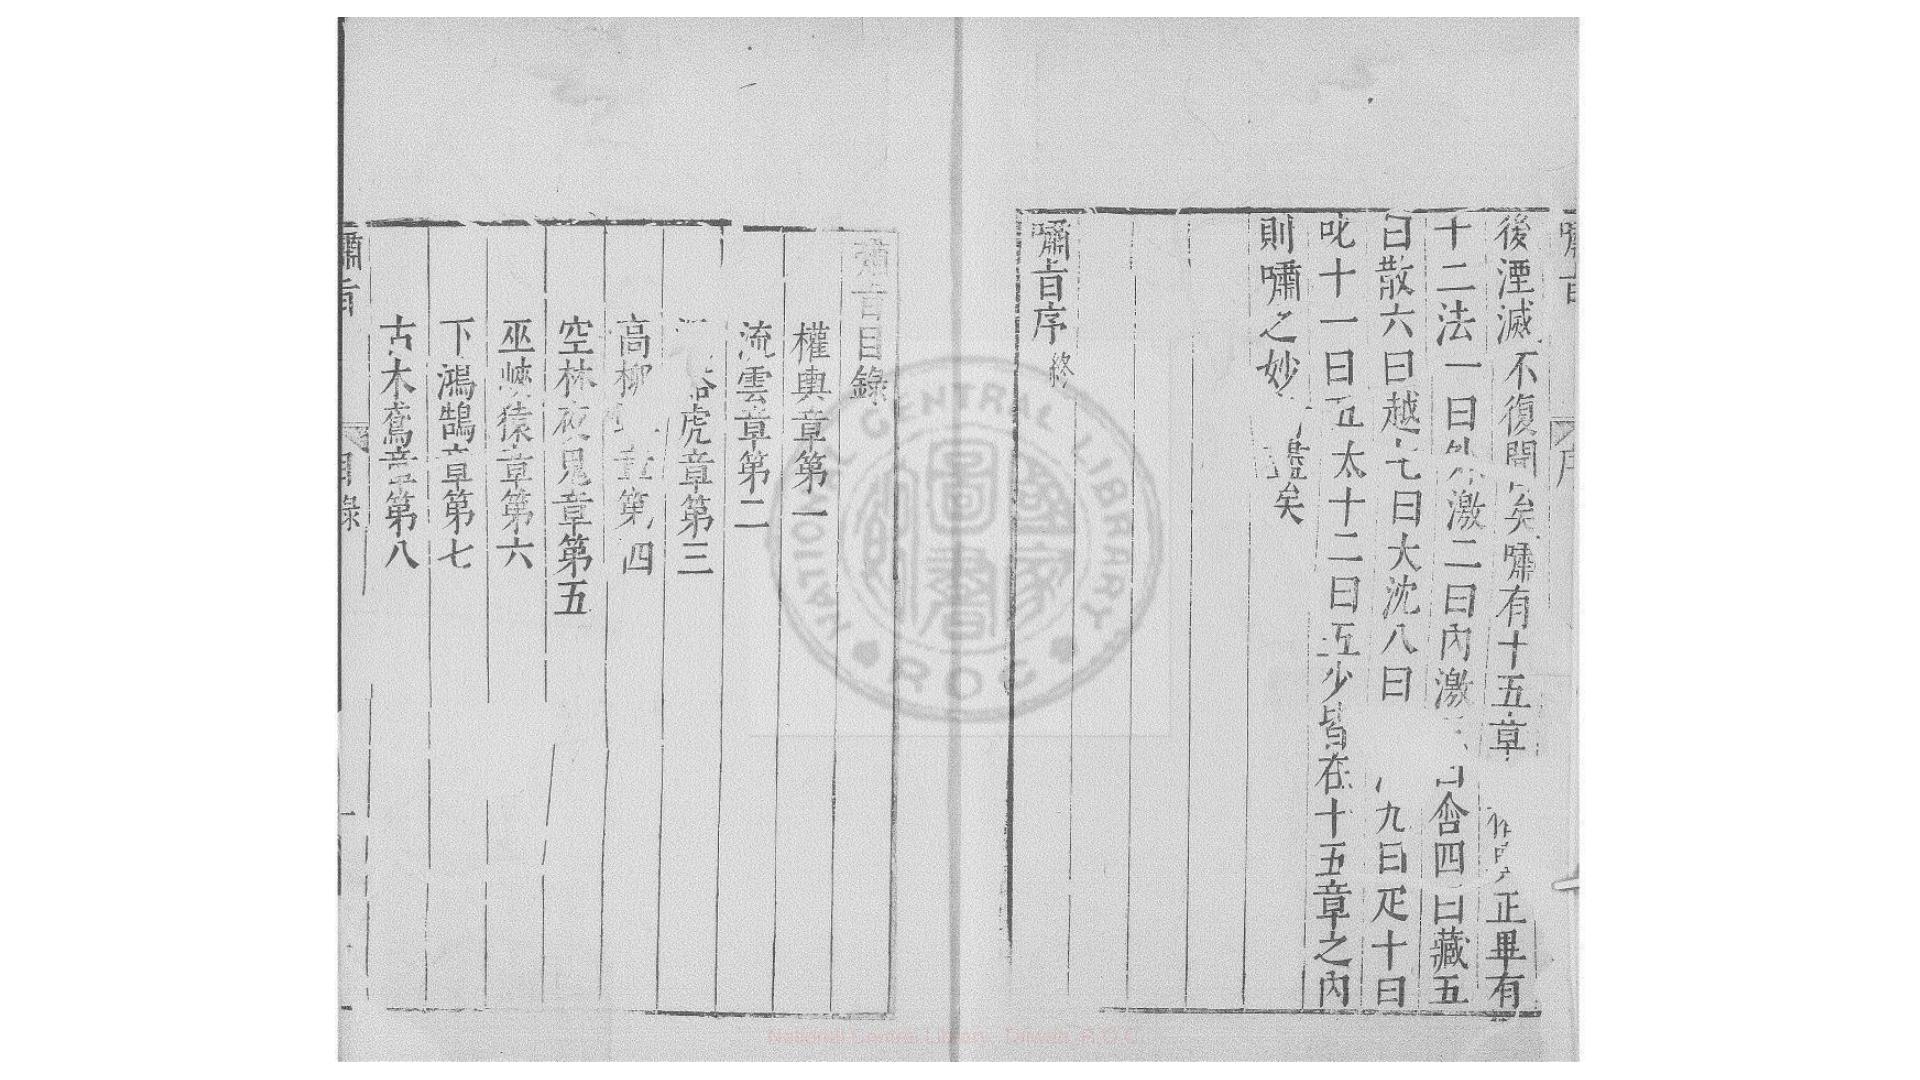 後湮滅不復聞矣嘯有十五章 正畢有
十二法一曰外激二曰內激 曰含四曰藏五
曰散六曰越七曰大沈八曰 九曰疋十曰
叱十一曰五太十二曰五少皆在十五章之內
則嘯之妙 矣
嘯旨序 終
嘯旨目錄
權輿章第一
流雲章第二
虎章第三
高柳 章第四
空林夜鬼章第五
巫峽猿章第六
下鴻鵠章第七
古木鳶章第八
嘯旨 目錄 一
圖書
國家
NATIONAL CENTRAL LIBRARY
ROC
National Central Library, Taiwan, R.O.C.